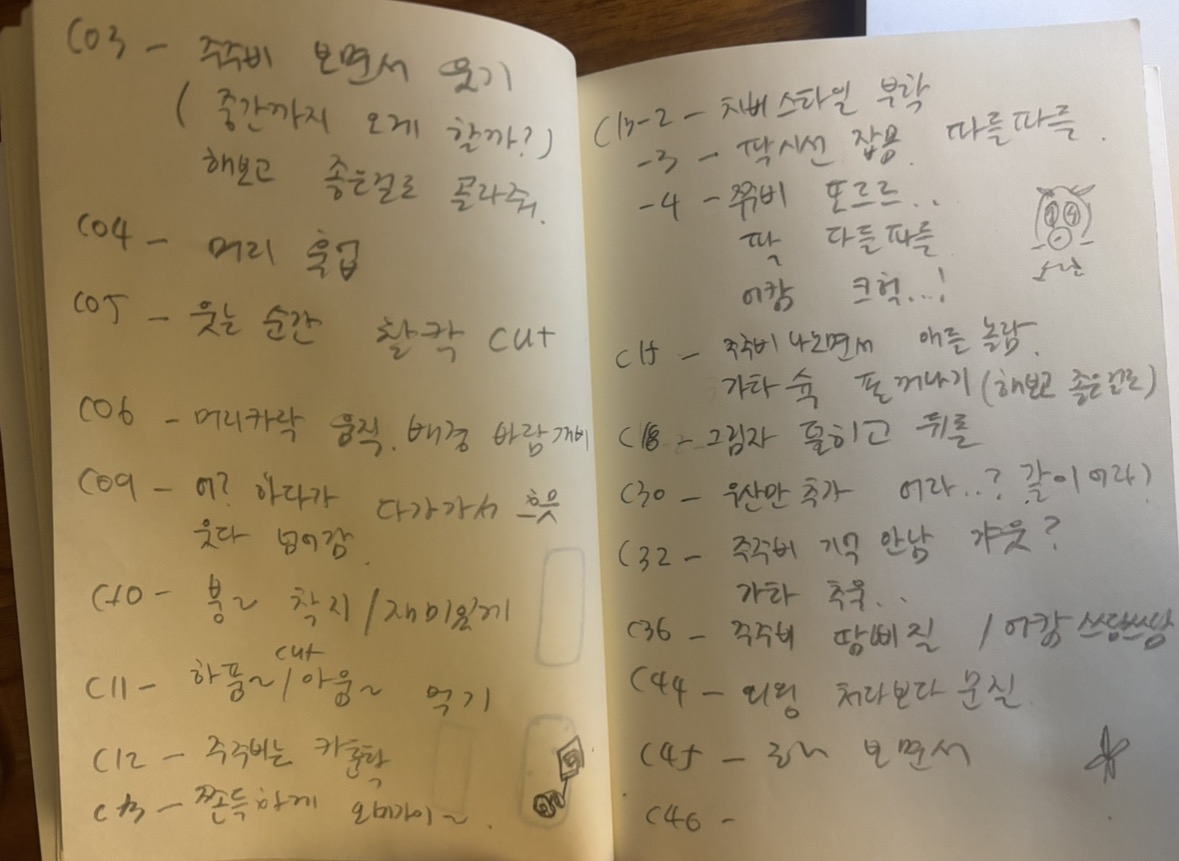 C03 - 주주비 보면서 웃기
( 중간까지 오게 할까? )
해보고 좋은걸로 골라줘.
C04 - 머리 훅업
C05 - 웃는 순간 찰칵 cut
C06 - 머리카락 움직. 배경 바람개비
C09 - 어? 하다가 다가가서 흐뭇
웃다 넘어감
C10 - 붕~ 착지 / 재미있게
cut
C11 - 하품~ / 아웅~ 먹기
C12 - 주주비는
C13 - 쫀득하게 오마가이~.
C13-2 - 치버스타일 부탁
-3 - 딱 시선 잡용. 따를따를.
-4 - 쭈비 또르르..
딸 다들따를
어캉 크헉...!
C15 - 주주비 나오면서 애들 놀람.
가타 숙 폰 꺼내기 (해보고 좋은걸로)
C18 - 그림자 뒤틀
C30 - 우산만 추가 어라..? 같이 어라?
C32 - 주주비 기억 안남 갸웃?
가타 추욱..
C36 - 주주비 땀삐질 / 어캉 쓰담쓰담
C44 - 쳐다보다 문질
C45 - 보면서
C46 -